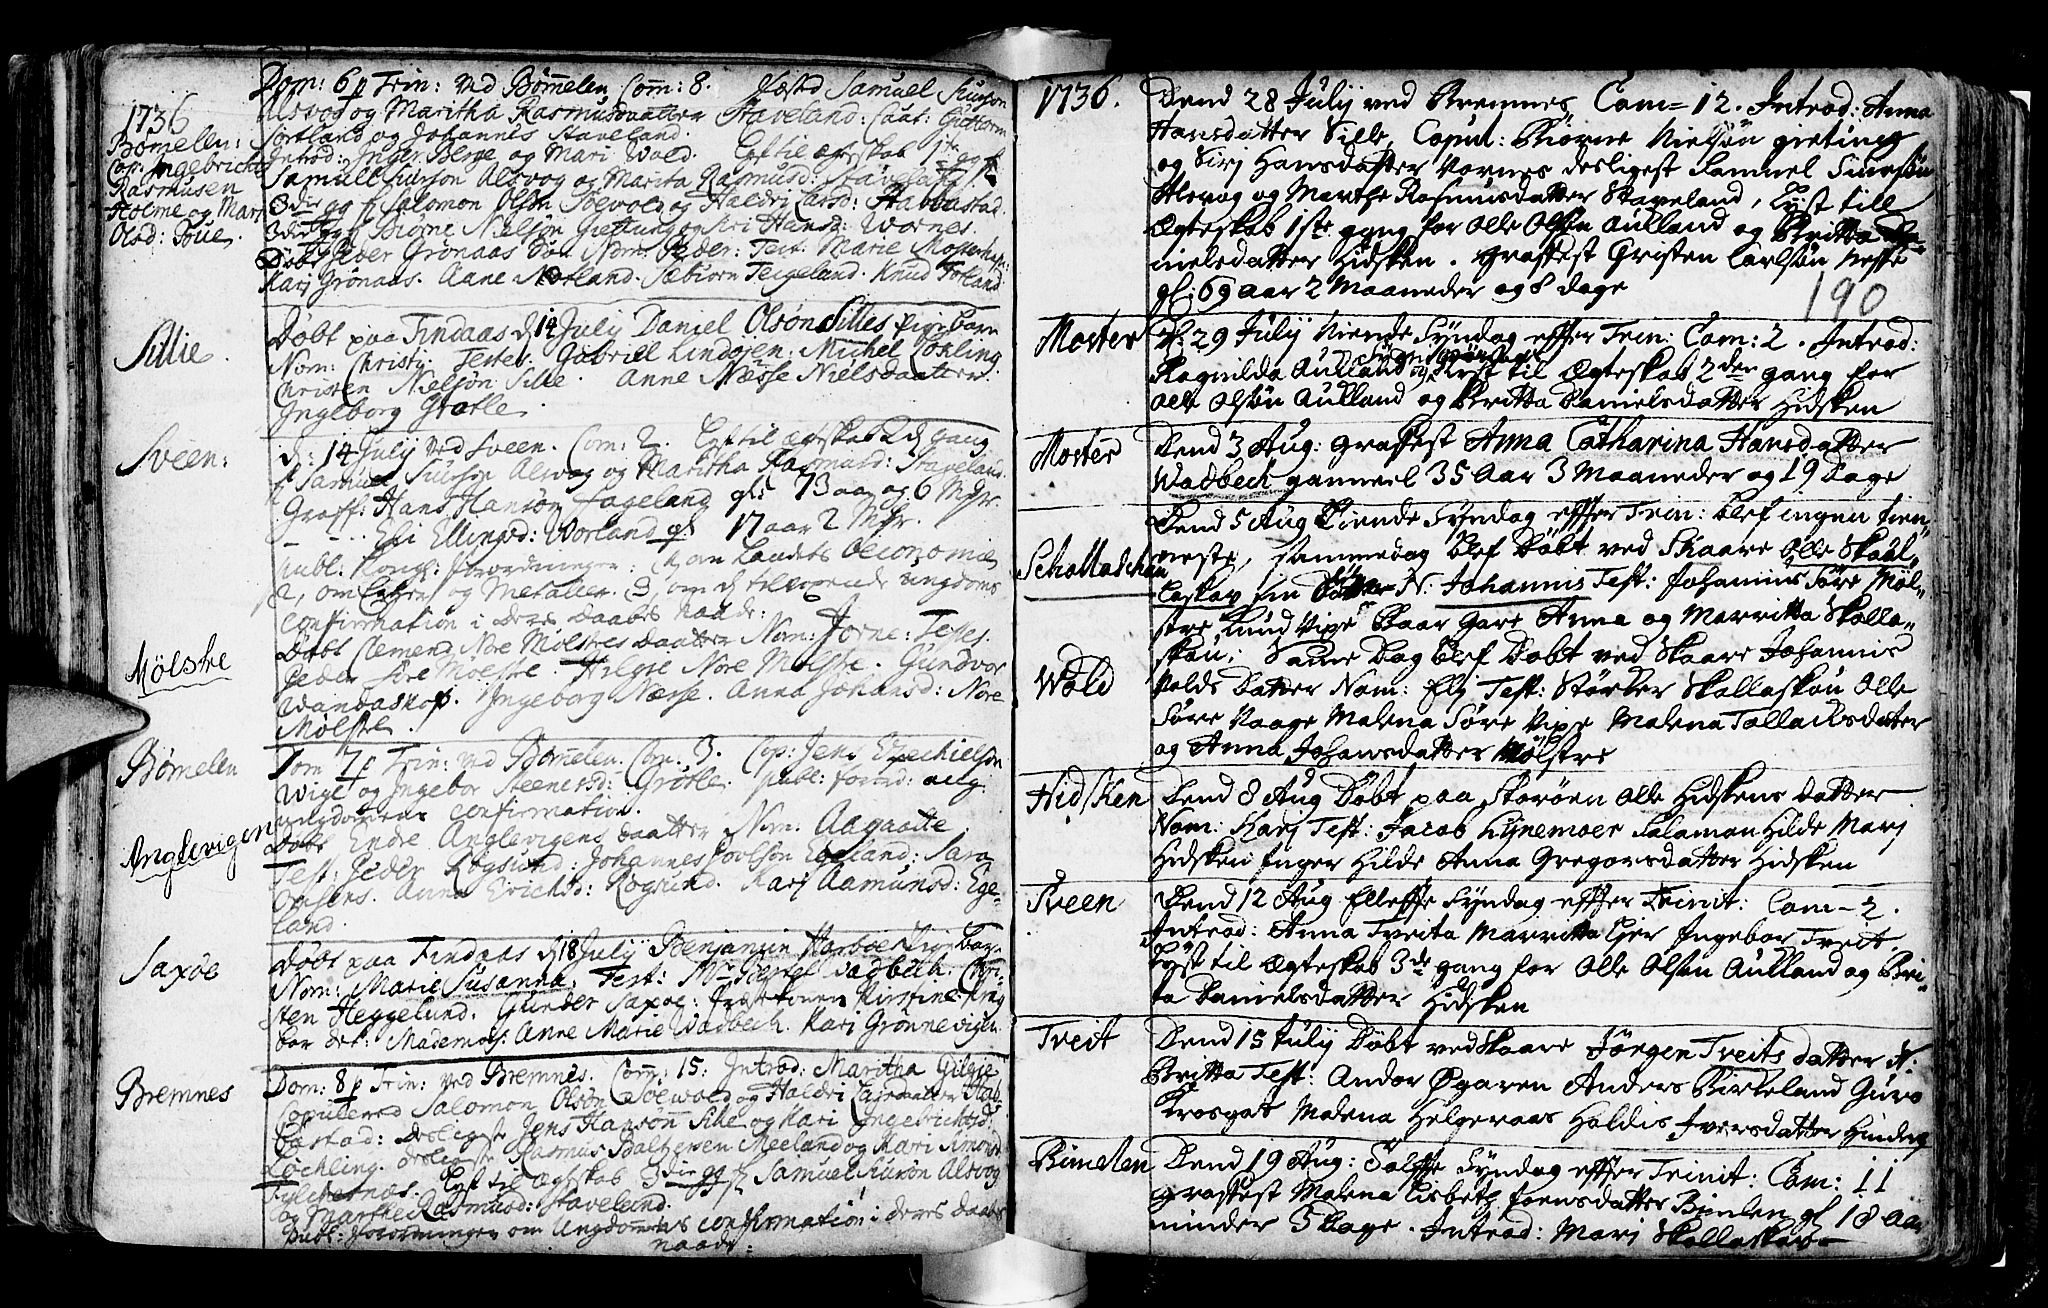 1736
Bömelen:
Cop: Ingebricht
Rasmusen
Holme og Mari
Olsd:
Dom: 6 p Trin: ved Bömelen Com: 8. Samuel Siurson
Alsvog og Maritha Rasmusdaatter Staveland: Caut: Guttorm
Sortland og Johannes Staveland.
Introd: Inger Berge og Mari Wold. Lyst til ægteskab 1ste gg f
Samuell Siurson Alsvog og Marita Rasmusd: Staveland
3die gg f Salomon Olsön og Haldri Larsd: Habbestad
3die gg f Biörne Nielsön Gietung og Siri Hansd: Wornes.
Döbt Peder Grönaas Sön. Nom: Peder: Test: Marie Mosterhafn:
Kari Grönaas. Aane Nortland. Sæbiorn Teigeland. Knud Totland
Sillie.
Döbt paa Findaas d 14 July Daniel Olsön Silles pigebarn
Nom: Christj Testes: Gabriell Lindöjen: Michel Lökling
Christen Nielsön Sille. Anne Næsse Nielsdaatter
Ingeborg Grotle.
Sveen:
d: 14 July ved Sveen. Com: 2. Lyst til ægteskab 2d gang
f Samuel Siurson Alsvog og Maritha Rasmusd: Staveland
Graff: Hans Hansön Fageland gl: 73 aar og 6 Mgr.
- - .. Eli Ellingsd: Worland gl 17 aar 2 Mgr.
publ. Kongl: Forordninger: 1, om Landets Oeconomie
2, om Lægen og Metaller. 3, om d tilvoxende ungdoms
confirmation i deres daabs naade:
Mölstre
Döbt Clemend Nore Mölstres daatter Nom: Jorne: Testes.
Peder Söre Moestre. Helge Nore Molstre. Gundvor
Wandaskog. Ingeborg Næsse. Anna Johansd: Nore
Mölstre.
Bömelen
Dom 7 p Trin: ved Bömelen. Com: 3. Cop: Jens Ezechielson
Wige og Ingebor Steenersd: Grötle. publ: forord: ang:
ungdomens confirmation.
Anglevigen
Döbt Endre Anglevigens daatter Nom: Aagaatte.
Test: Peder Rogsund: Johannes Povlson Egeland: Sara
Opsens. Anna Erichsd: Rogsund. Karj Aamunsd: Ege=
land.
Saxöe
Döbt paa Findaas d 18 July Benjamin Harboe Pigebar.
Nom: Marie Susanna. Test: Mr. Wadbech. Chri=
sten Heggelund. Gunder Saxöe: Kirstine
Mademois: Anne Marie Wadbech. Kari Grönnevigen
Bremnes
Dom: 8 p Trin: ved Bremnes. Com: 15: Introd: Maritha Gilgie
Copulered Salomon Olsön og Haldri Larsdaatter Hab=
bestad: desligeste Jens Hansönn Sille og Kari Ingebrichtsd:
Löchling. desligeste Rasmus Baltzersen Meeland og Kari Simonsd
Lyst til ægteskab 3die gg f Samuel Siurön Alsvog
og Marthe Rasmusd: Staveland.
Publ: Forordningen om Ungdommens confirmation i deres daabs
naade:
1736.
Dend 28 Julij ved Bremnes, Com= 12. Introd: Anna
Hansdatter Sille, Copul: Biörne Nielsön gieting
og Sirj Hansdatter Vornes desligest Samuel Siursön
Alsvog og Marthe Rasmusdatter Staveland, Lyst till
Ægteskab 1ste gang for Olle Olsön Aulland og Britta Da=
nielsdatter Hidsken. graffest Christen Carlsön Nesse
gl: 69 aar 2 Maaneder og 8 dage
190
Moster
D: 29 Julij Niende Syndag effter Trin: Com: 2. Introd:
Ragnilda Aulland og Lyst til Ægteskab 2den gang for
Olle Olsön Aulland og Britta Danielsdatter Hidsken
Moster
Dend 3 Aug: graffest Anna Catharina Hansdatter
Wadbech gammel 35 Aar 3 Maaneder og 19 Dage
Schallaschau
Dend 5 Aug Tiende Syndag effter Trin: blef ingen tien=
neste, sammedag blef Döbt ved Skaare Olle Skaal=
laskav en Sön N: Johannis Test: Johannis Söre Möl=
stre Knud Vixe Baar Gare Anna og Marritta Skalla=
skau; Samme Dag blef Döbt ved Skaare Johannis
Wold
Volds Datter Nom: Elj Test: Störker Skallaskau Olle
Söre Vaage Malena Söre Vixe Malena Tallacksdatter
og Anna Johansdatter Mölstre
Hidsken
Dend 8 Aug Döbt paa Storöen Olle Hidskens Datter
Nom: Karj Test: Jacob Lynemoer Salamon Hilde Marj
Hidsken Inger Hilde Anna Gregorsdatter Hidsken
Sveen
Dend 12 Aug Elleffte Syndag effter Trinit: Com= 2.
Introd: Anna Tveita Marritta Eier Ingebor Treit.
Lyst til Ægteskab 3de gang for Olle Olsön Aulland og Bri=
ta Danielsdatter Hidsken
Treit
Dend 15 Julij Döbt ved Skaare Jörgen Treits datter N:
Britta Test: Andor Ögaren Anders Birkeland Guro
Krosgat Malena Helgeraas Haldis Iversdatter
Bömelen
Dend 19 Aug: Tolffte Syndag effter Trinit: Com: 11
graffest Malena Lisbeth Joensdatter Bömlen gl 18 Aar
minder 5 Dage. Introd: Marj Skallaskav